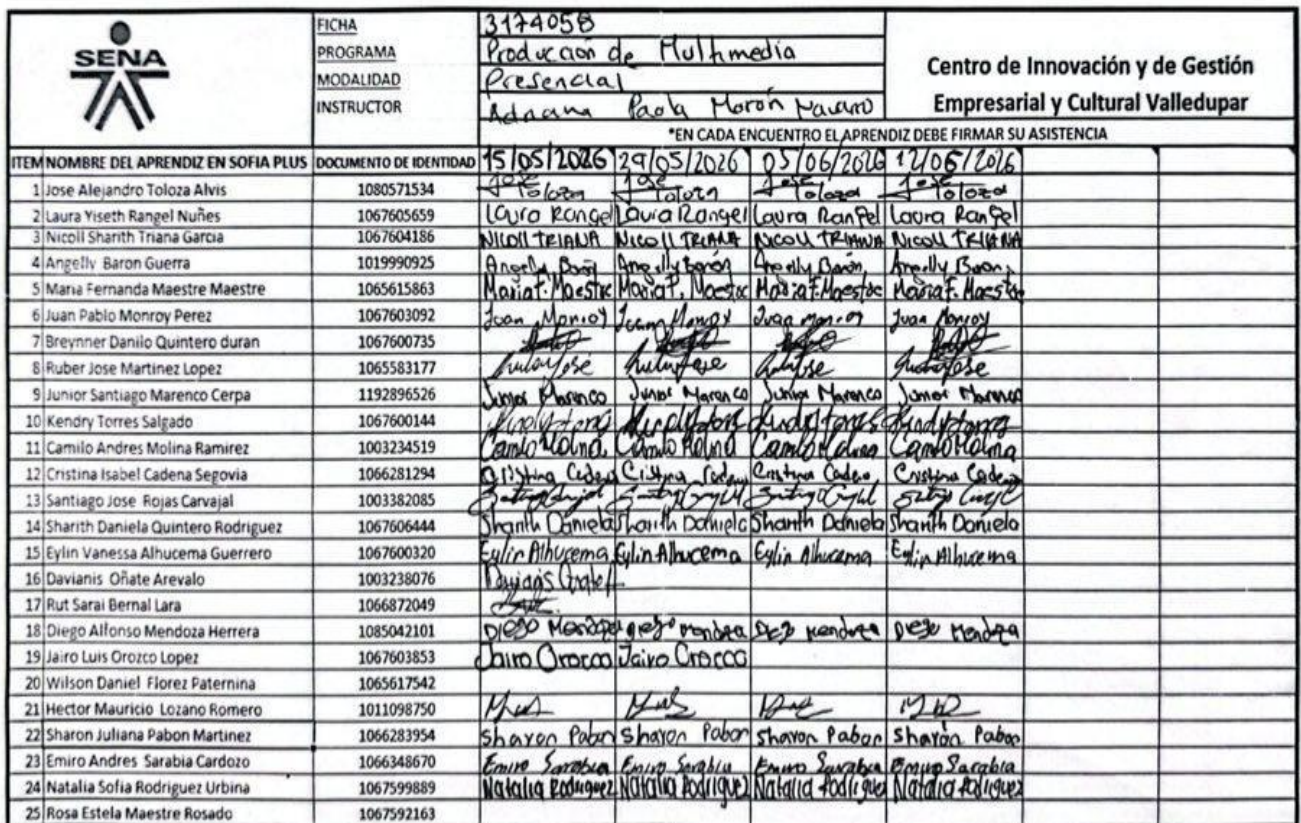 SENA
FICHA 3174058
PROGRAMA Producción de Multimedia
MODALIDAD Presencial
INSTRUCTOR Adriana Paola Morón Navarro
Centro de Innovación y de Gestión
Empresarial y Cultural Valledupar
*EN CADA ENCUENTRO EL APRENDIZ DEBE FIRMAR SU ASISTENCIA
ITEM NOMBRE DEL APRENDIZ EN SOFIA PLUS DOCUMENTO DE IDENTIDAD 15/05/2026 29/05/2026 05/06/2026 12/06/2026
1 Jose Alejandro Toloza Alvis 1080571534 Jose Toloza Jose Toloza Jose Toloza Jose Toloza
2 Laura Yiseth Rangel Nuñes 1067605659 Laura Rangel Laura Rangel Laura Rangel Laura Rangel
3 Nicoll Sharith Triana Garcia 1067604186 NICOll TRIANA NICOll TRIANA NICOll TRIANA NICOll TRIANA
4 Angelly Baron Guerra 1019990925 Angelly Barón Angelly Barón Angelly Barón Angelly Baron
5 Maria Fernanda Maestre Maestre 1065615863 Maria f. Maestre Maria f. Maestre Maria f. Maestre Maria f. Maestre
6 Juan Pablo Monroy Perez 1067603092 Juan Monroy Juan Monroy Juan Monroy Juan Monroy
7 Breynner Danilo Quintero duran 1067600735
8 Ruber Jose Martinez Lopez 1065583177
9 Junior Santiago Marenco Cerpa 1192896526 Junior Marenco Junior Marenco Junior Marenco Junior Marenco
10 Kendry Torres Salgado 1067600144
11 Camilo Andres Molina Ramirez 1003234519 Camilo Molina Camilo Molina Camilo Molina Camilo Molina
12 Cristina Isabel Cadena Segovia 1066281294 Cristina Cadena Cristina Cadena Cristina Cadena Cristina Cadena
13 Santiago Jose Rojas Carvajal 1003382085
14 Sharith Daniela Quintero Rodriguez 1067606444 Sharith Daniela Sharith Daniela Sharith Daniela Sharith Daniela
15 Eylin Vanessa Alhucema Guerrero 1067600320 Eylin Alhucema Eylin Alhucema Eylin Alhucema Eylin Alhucema
16 Davianis Oñate Arevalo 1003238076 Davianis Oñate
17 Rut Sarai Bernal Lara 1066872049
18 Diego Alfonso Mendoza Herrera 1085042101 Diego Mendoza Diego Mendoza Diego Mendoza Diego Mendoza
19 Jairo Luis Orozco Lopez 1067603853 Jairo Orozco Jairo Orozco
20 Wilson Daniel Florez Paternina 1065617542
21 Hector Mauricio Lozano Romero 1011098750
22 Sharon Juliana Pabon Martinez 1066283954 Sharon Pabon Sharon Pabon Sharon Pabon Sharon Pabon
23 Emiro Andres Sarabia Cardozo 1066348670 Emiro Sarabia Emiro Sarabia Emiro Sarabia Emiro Sarabia
24 Natalia Sofia Rodriguez Urbina 1067599889 Natalia Rodriguez Natalia Rodriguez Natalia Rodriguez Natalia Rodriguez
25 Rosa Estela Maestre Rosado 1067592163